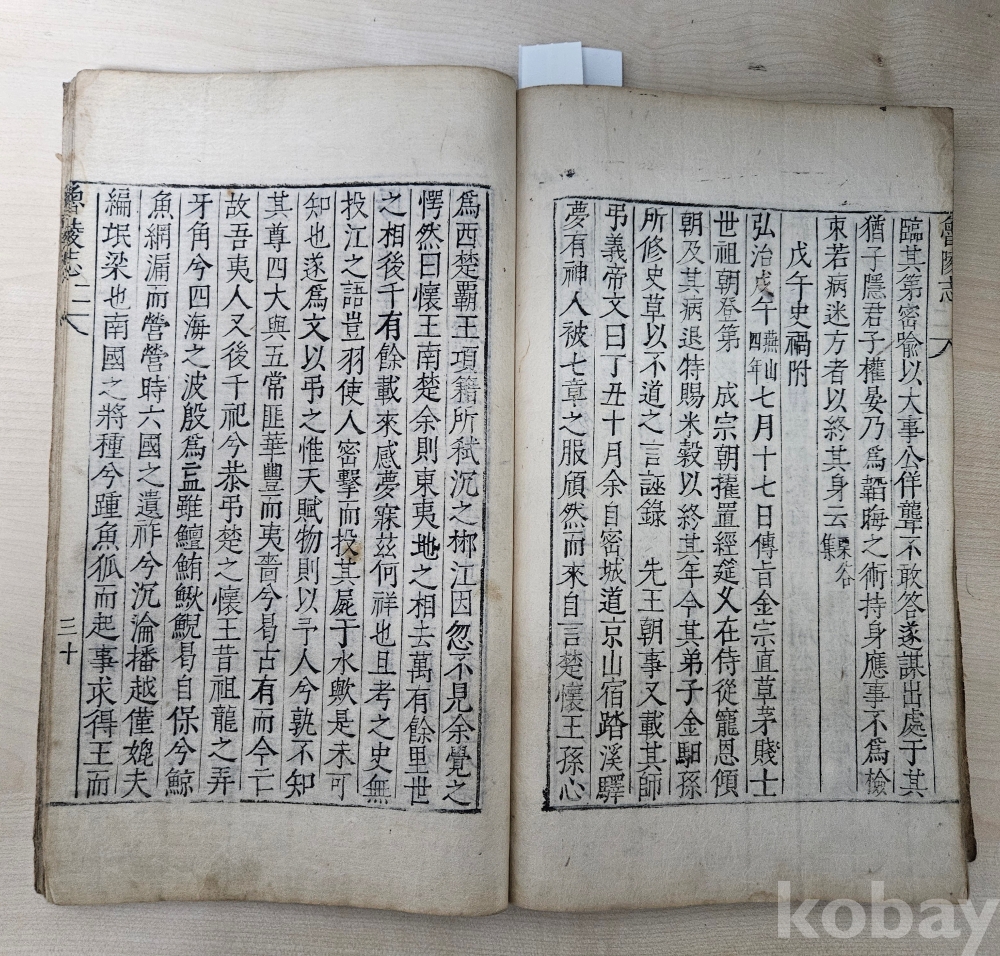 臨其第密喩以大事公佯聾不敢答遂謀出處于其
猶子隱君子權晏乃爲韜晦之術持身應事不爲檢
束若病迷方者以終其身云 栗谷集
戊午史禍附
弘治戊午 燕山四年 七月十七日傳旨金宗直草茅賤士
世祖朝登第 成宗朝擢置經筵久在侍從寵恩傾
朝及其病退特賜米穀以終其年今其弟子金馹孫
所修史草以不道之言誣錄 先王朝事又載其師
弔義帝文曰丁丑十月余自密城道京山宿踏溪驛
夢有神人被七章之服頎然而來自言楚懷王孫心
爲西楚霸王項籍所弒沉之郴江因忽不見余覺之
愕然曰懷王南楚余則東夷地之相去萬有餘里世
之相後千有餘載來感夢寐茲何祥也且考之史無
投江之語豈羽使人密擊而投其屍于水歟是未可
知也遂爲文以弔之惟天賦物則以予人兮孰不知
其尊四大與五常匪華豐而夷嗇兮曷古有而今亡
故吾夷人又後千祀兮恭弔楚之懷王昔祖龍之弄
牙角兮四海之波殷爲衁雖鱣鮪鰍鯢曷自保兮
魚網漏而營營時六國之遺祚兮沉淪播越僅媲夫
編氓梁也南國之將種兮踵魚狐而起事求得王而
魯陵志二
三十
魯陵志二
kobay